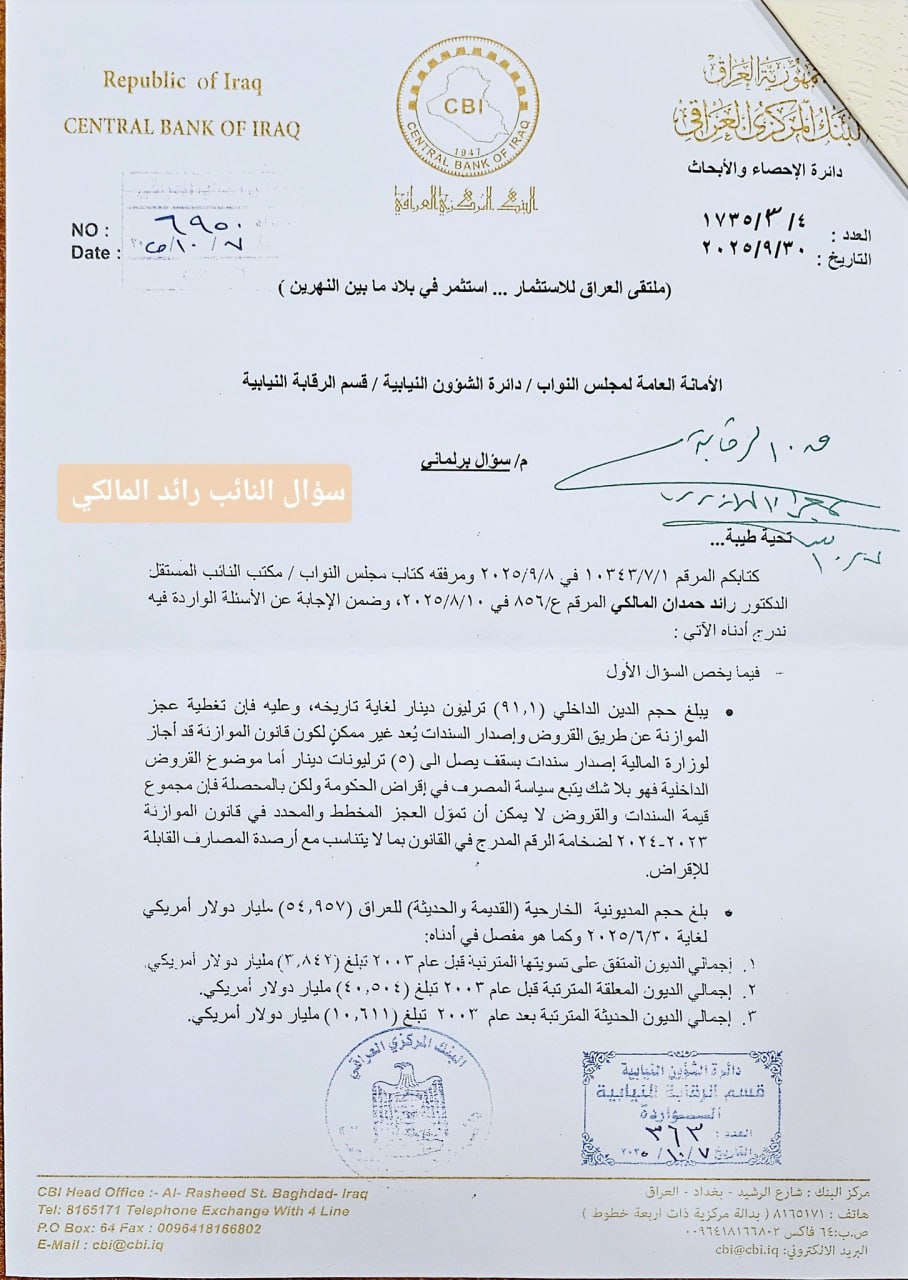 Republic of Iraq
CENTRAL BANK OF IRAQ
CBI
CENTRAL BANK OF IRAQ
1947
البنك المركزي العراقي
جمهورية العراق
البنك المركزي العراقي
دائرة الإحصاء والأبحاث
NO : ٦٩٥٠
Date : ٧ /١٠/
العدد : ١٧٣٥/٣/٤
التاريخ : ٢٠٢٥/٩/٣٠
(ملتقى العراق للاستثمار ... استثمر في بلاد ما بين النهرين )
الأمانة العامة لمجلس النواب / دائرة الشؤون النيابية / قسم الرقابة النيابية
م/ سؤال برلماني
سؤال النائب رائد المالكي
تحية طيبة...
كتابكم المرقم ١٠٣٤٣/٧/١ في ٢٠٢٥/٩/٨ ومرفقه كتاب مجلس النواب / مكتب النائب المستقل
الدكتور رائد حمدان المالكي المرقم ع/٨٥٦ في ٢٠٢٥/٨/١٠، وضمن الإجابة عن الأسئلة الواردة فيه
ندرج أدناه الآتي :
- فيما يخص السؤال الأول
• يبلغ حجم الدين الداخلي (٩١,١) ترليون دينار لغاية تاريخه، وعليه فإن تغطية عجز
الموازنة عن طريق القروض وإصدار السندات يُعد غير ممكنٍ لكون قانون الموازنة قد أجاز
لوزارة المالية إصدار سندات بسقف يصل الى (٥) ترليونات دينار أما موضوع القروض
الداخلية فهو بلا شك يتبع سياسة المصرف في إقراض الحكومة ولكن بالمحصلة فإن مجموع
قيمة السندات والقروض لا يمكن أن تموّل العجز المخطط والمحدد في قانون الموازنة
٢٠٢٣-٢٠٢٤ لضخامة الرقم المدرج في القانون بما لا يتناسب مع أرصدة المصارف القابلة
للإقراض.
• بلغ حجم المديونية الخارجية (القديمة والحديثة) للعراق (٥٤,٩٥٧) مليار دولار أمريكي
لغاية ٢٠٢٥/٦/٣٠ وكما هو مفصل في أدناه:
١. إجمالي الديون المتفق على تسويتها المترتبة قبل عام ٢٠٠٣ تبلغ (٣,٨٤٢) مليار دولار أمريكي.
٢. إجمالي الديون المعلقة المترتبة قبل عام ٢٠٠٣ تبلغ (٤٠,٥٠٤) مليار دولار أمريكي.
٣. إجمالي الديون الحديثة المترتبة بعد عام ٢٠٠٣ تبلغ (١٠,٦١١) مليار دولار أمريكي.
البنك المركزي العراقي
دائرة الشؤون النيابية
قسم الرقابة النيابية
الـــــواردة
العدد : ٣٦٣
التاريخ ٧/ ١٠ / ٢٠٢٥
CBI Head Office :- Al- Rasheed St. Baghdad- Iraq
Tel: 8165171 Telephone Exchange With 4 Line
P.O Box: 64 Fax : 0096418166802
E-Mail : cbi@cbi.iq
مركز البنك : شارع الرشيد - بغداد - العراق
هاتف : ٨١٦٥١٧١ ( بدالة مركزية ذات اربعة خطوط )
ص.ب:٦٤ فاكس ٠٠٩٦٤١٨١٦٦٨٠٢
البريد الالكتروني: cbi@cbi.iq